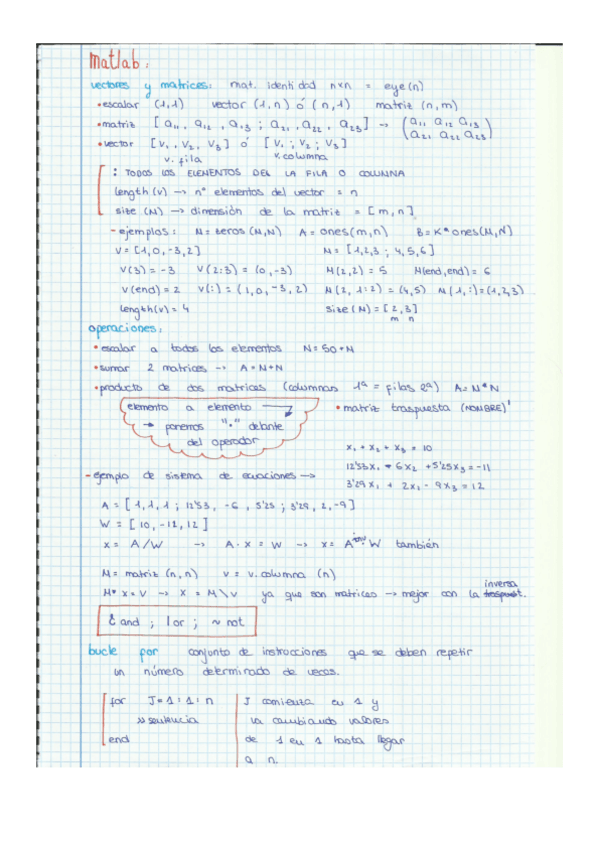 Matlab:
vectores y matrices: mat. identidad n×n = eye(n)
• escalar (1,1) vector (1,n) ó (n,1) matriz (n,m)
• matriz [a₁₁, a₁₂, a₁₃ ; a₂₁, a₂₂, a₂₃] → (a₁₁ a₁₂ a₁₃
a₂₁ a₂₂ a₂₃)
• vector [V₁, V₂, V₃] ó [V₁ ; V₂ ; V₃]
v. fila v. columna
: TODOS LOS ELEMENTOS DEL LA FILA O COLUMNA
length(v) → nº elementos del vector = n
size(M) → dimensión de la matriz = [m,n]
- ejemplos: M = zeros(M,N) A = ones(m,n) B = K*ones(M,N)
V = [1,0,-3,2] M = [1,2,3 ; 4,5,6]
V(3) = -3 V(2:3) = (0,-3) M(2,2) = 5 M(end,end) = 6
V(end) = 2 V(:) = (1,0,-3,2) M(2,1:2) = (4,5) M(1,:) = (1,2,3)
length(v) = 4 size(M) = [2,3]
m n
operaciones:
• escalar a todos los elementos N = 50+N
• sumar 2 matrices → A = M+N
• producto de dos matrices (columnas 1ª = filas 2ª) A = M*N
elemento a elemento
→ ponemos "." delante
del operador
• matriz traspuesta (NOMBRE)'
x₁ + x₂ + x₃ = 10
12'53x₁ - 6x₂ + 5'25x₃ = -11
3'29x₁ + 2x₂ - 9x₃ = 12
- ejemplo de sistema de ecuaciones →
A = [1,1,1 ; 12'53, -6, 5'25 ; 3'29, 2, -9]
W = [10, -12, 12]
x = A/W → A·x = W → x = A W también
M = matriz (n,n) v = v.columna (n)
M*x = V → x = M\v ya que son matrices → mejor con la inversa
& and ; | or ; ~ not
bucle por conjunto de instrucciones que se deben repetir
un número determinado de veces.
for J = 1:1:n
sentencia
end
J comienza en 1 y
va cambiando valores
de 1 en 1 hasta llegar
a n.